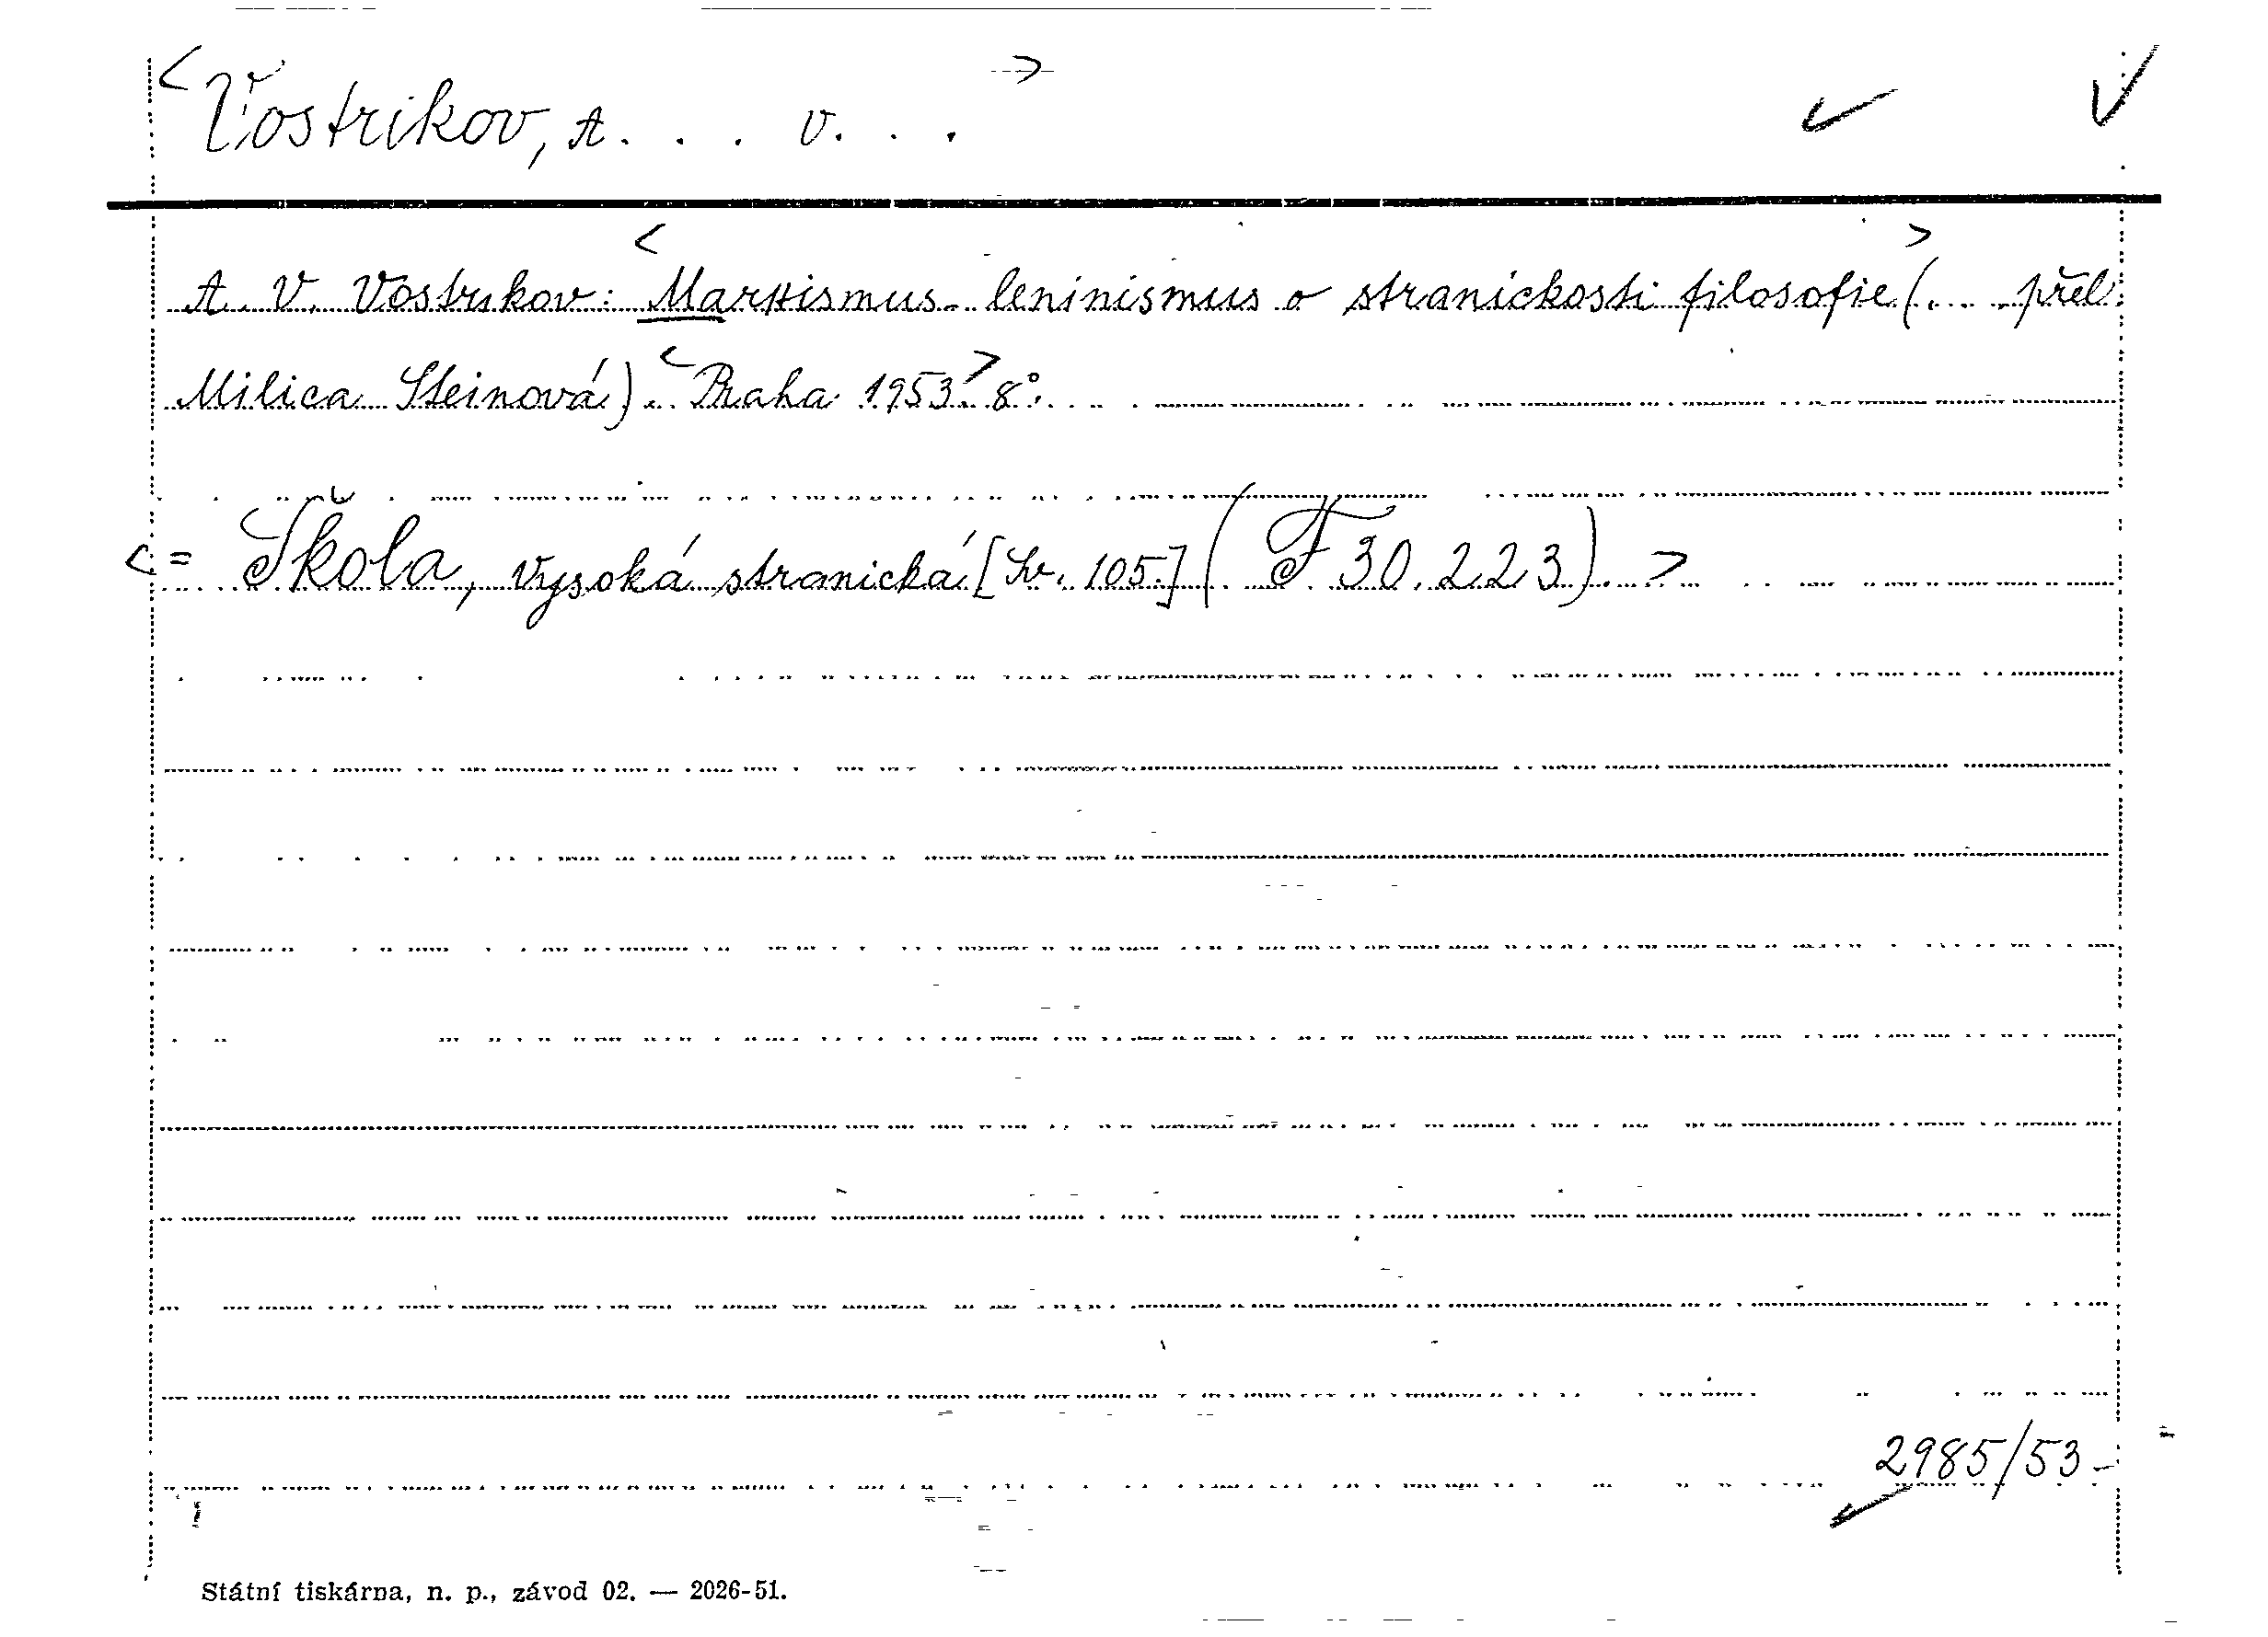 <Vostrikov, A. . . V. . . >
A. V. Vostrikov: <Marxismus-leninismus o stranickosti filosofie> (... přel.
Milica Steinová). <Praha 1953> 8°.
<= Škola, vysoká stranická [Sv. 105.] (F 30.223). >
2985/53
Státní tiskárna, n. p., závod 02. — 2026-51.